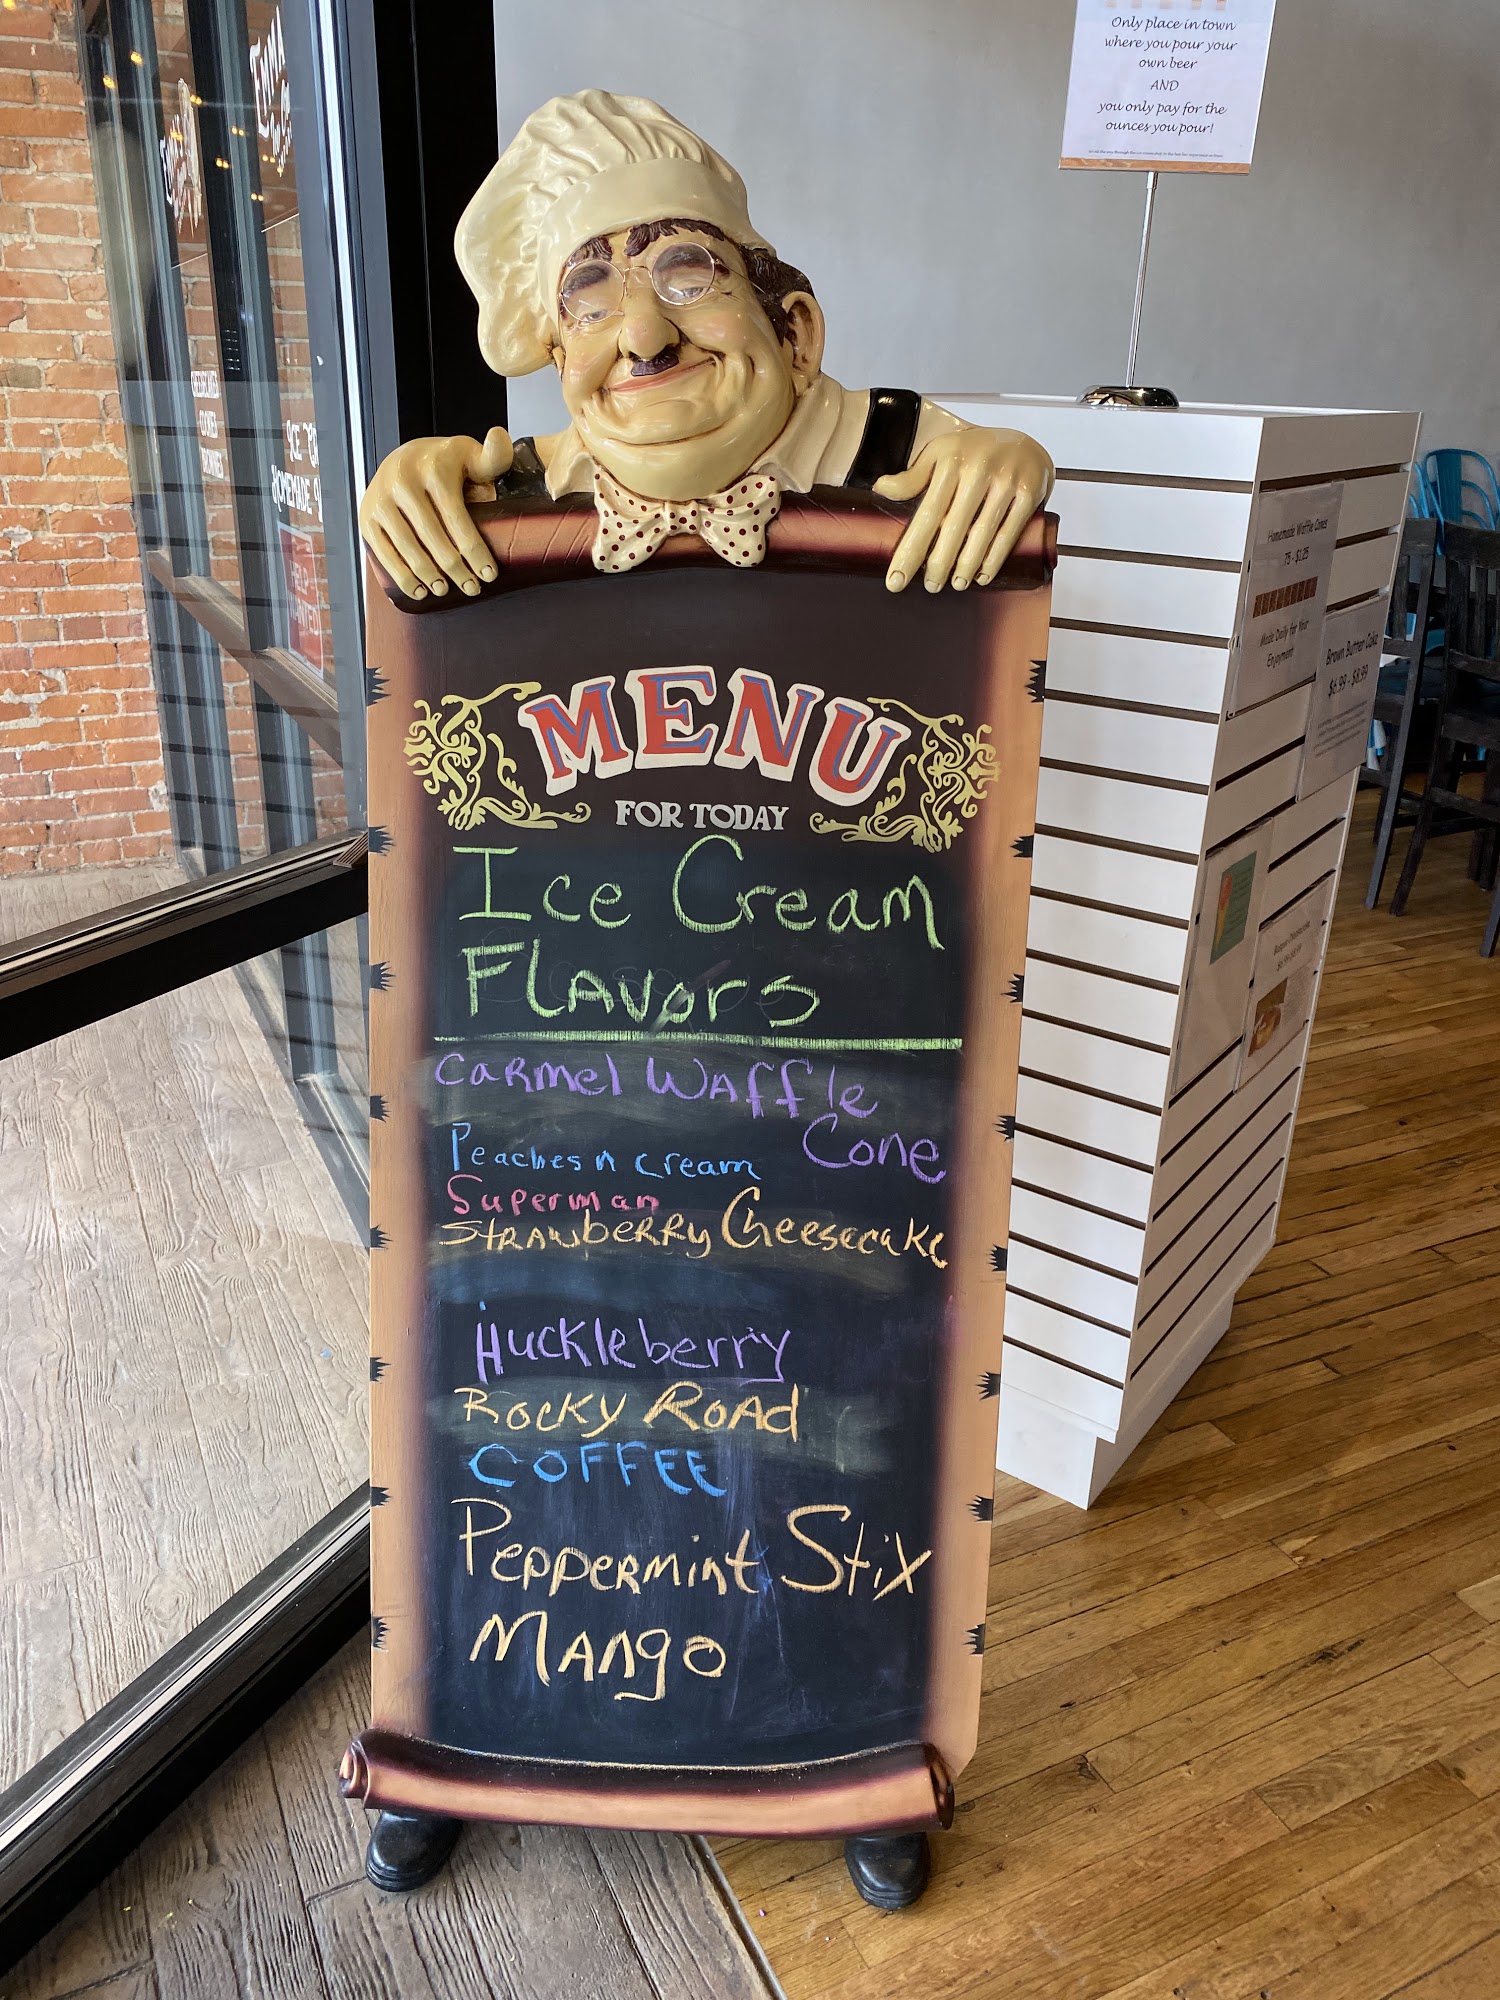 Only place in town
where you pour your
own beer
AND
you only pay for the
ounces you pour!
MENU
FOR TODAY
Ice Cream
Flavors
Carmel Waffle
Cone
Peaches n cream
Superman
Strawberry Cheesecake
Huckleberry
Rocky Road
COFFEE
Peppermint Stix
Mango
Homemade Waffle Cones
.75 - $1.25
Made Daily for Your
Enjoyment
Brown Butter Cake
$6.99 - $8.99
HELP